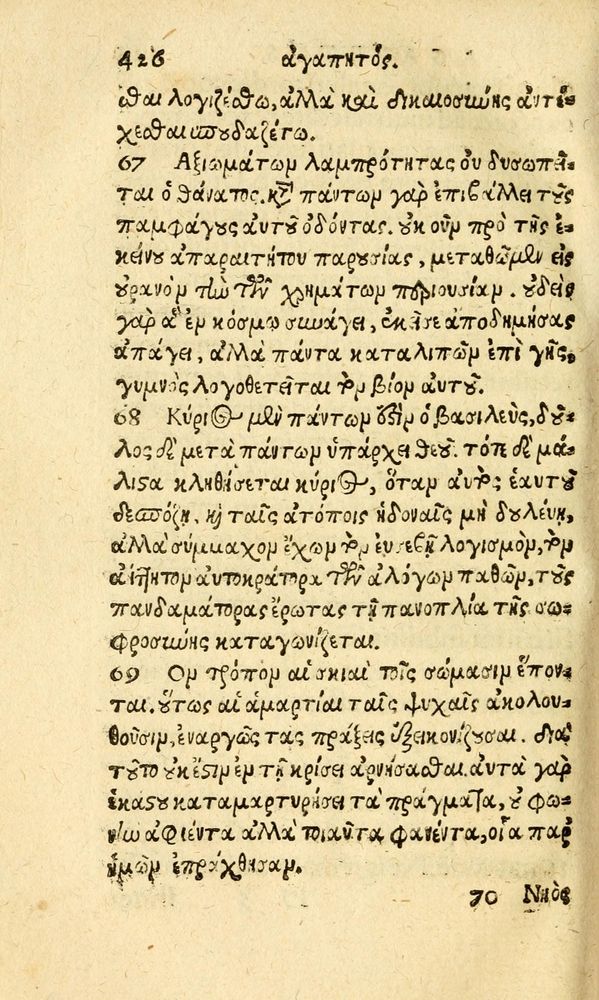 426 ἀγαπητὸς.
σθαι λογιζέσθω, ἀλλὰ καὶ δικαιοσύνης ἀντέ-
χεσθαι σπουδαζέτω.
67 Ἀξιωμάτων λαμπρότητας οὐ δυσωπεῖ-
ται ὁ θάνατος. κατὰ πάντων γὰρ ἐπιβάλλει τοὺς
παμφάγους αὐτοῦ ὀδόντας. οὐκοῦν πρὸ τῆς ἐ-
κείνου ἀπαραιτήτου παρουσίας, μεταθῶμεν εἰς
οὐρανὸν τὴν τῶν χρημάτων περιουσίαν. οὐδεὶς
γὰρ ἃ ἐν κόσμῳ συνάγει, ἐκεῖσε ἀποδημήσας
ἀπάγει, ἀλλὰ πάντα καταλιπὼν ἐπὶ γῆς,
γυμνὸς λογοθετεῖται τὸν βίον αὐτοῦ.
68 Κύριος μὲν πάντων ἐστὶν ὁ βασιλεὺς, δοῦ-
λος δὲ μετὰ πάντων ὑπάρχει θεοῦ. τότε δὲ μά-
λιστα κληθήσεται κύριος, ὅταν αὐτὸς ἑαυτοῦ
δεσπόζῃ, καὶ ταῖς ἀτόποις ἡδοναῖς μὴ δουλεύῃ,
ἀλλὰ σύμμαχον ἔχων τὸν εὐσεβῆ λογισμὸν, τὸν
ἀήττητον αὐτοκράτορα τῶν ἀλόγων παθῶν, τοὺς
πανδαμάτορας ἔρωτας τῇ πανοπλίᾳ τῆς σω-
φροσύνης καταγωνίζεται.
69 Ὃν τρόπον αἱ σκιαὶ τοῖς σώμασιν ἕπον-
ται. οὕτως αἱ ἁμαρτίαι ταῖς ψυχαῖς ἀκολου-
θοῦσιν, ἐναργῶς τὰς πράξεις ἐξεικονίζουσαι. διὰ
τοῦτο οὐκ ἔστιν ἐν τῇ κρίσει ἀρνήσασθαι. αὐτὰ γὰρ
ἑκάστου καταμαρτυρήσει τὰ πράγματα, οὐ φω-
νὴν ἀφιέντα ἀλλὰ τοιαῦτα φανέντα, οἷα παρ
ἡμῶν ἐπράχθησαν.
70 Νηὸς